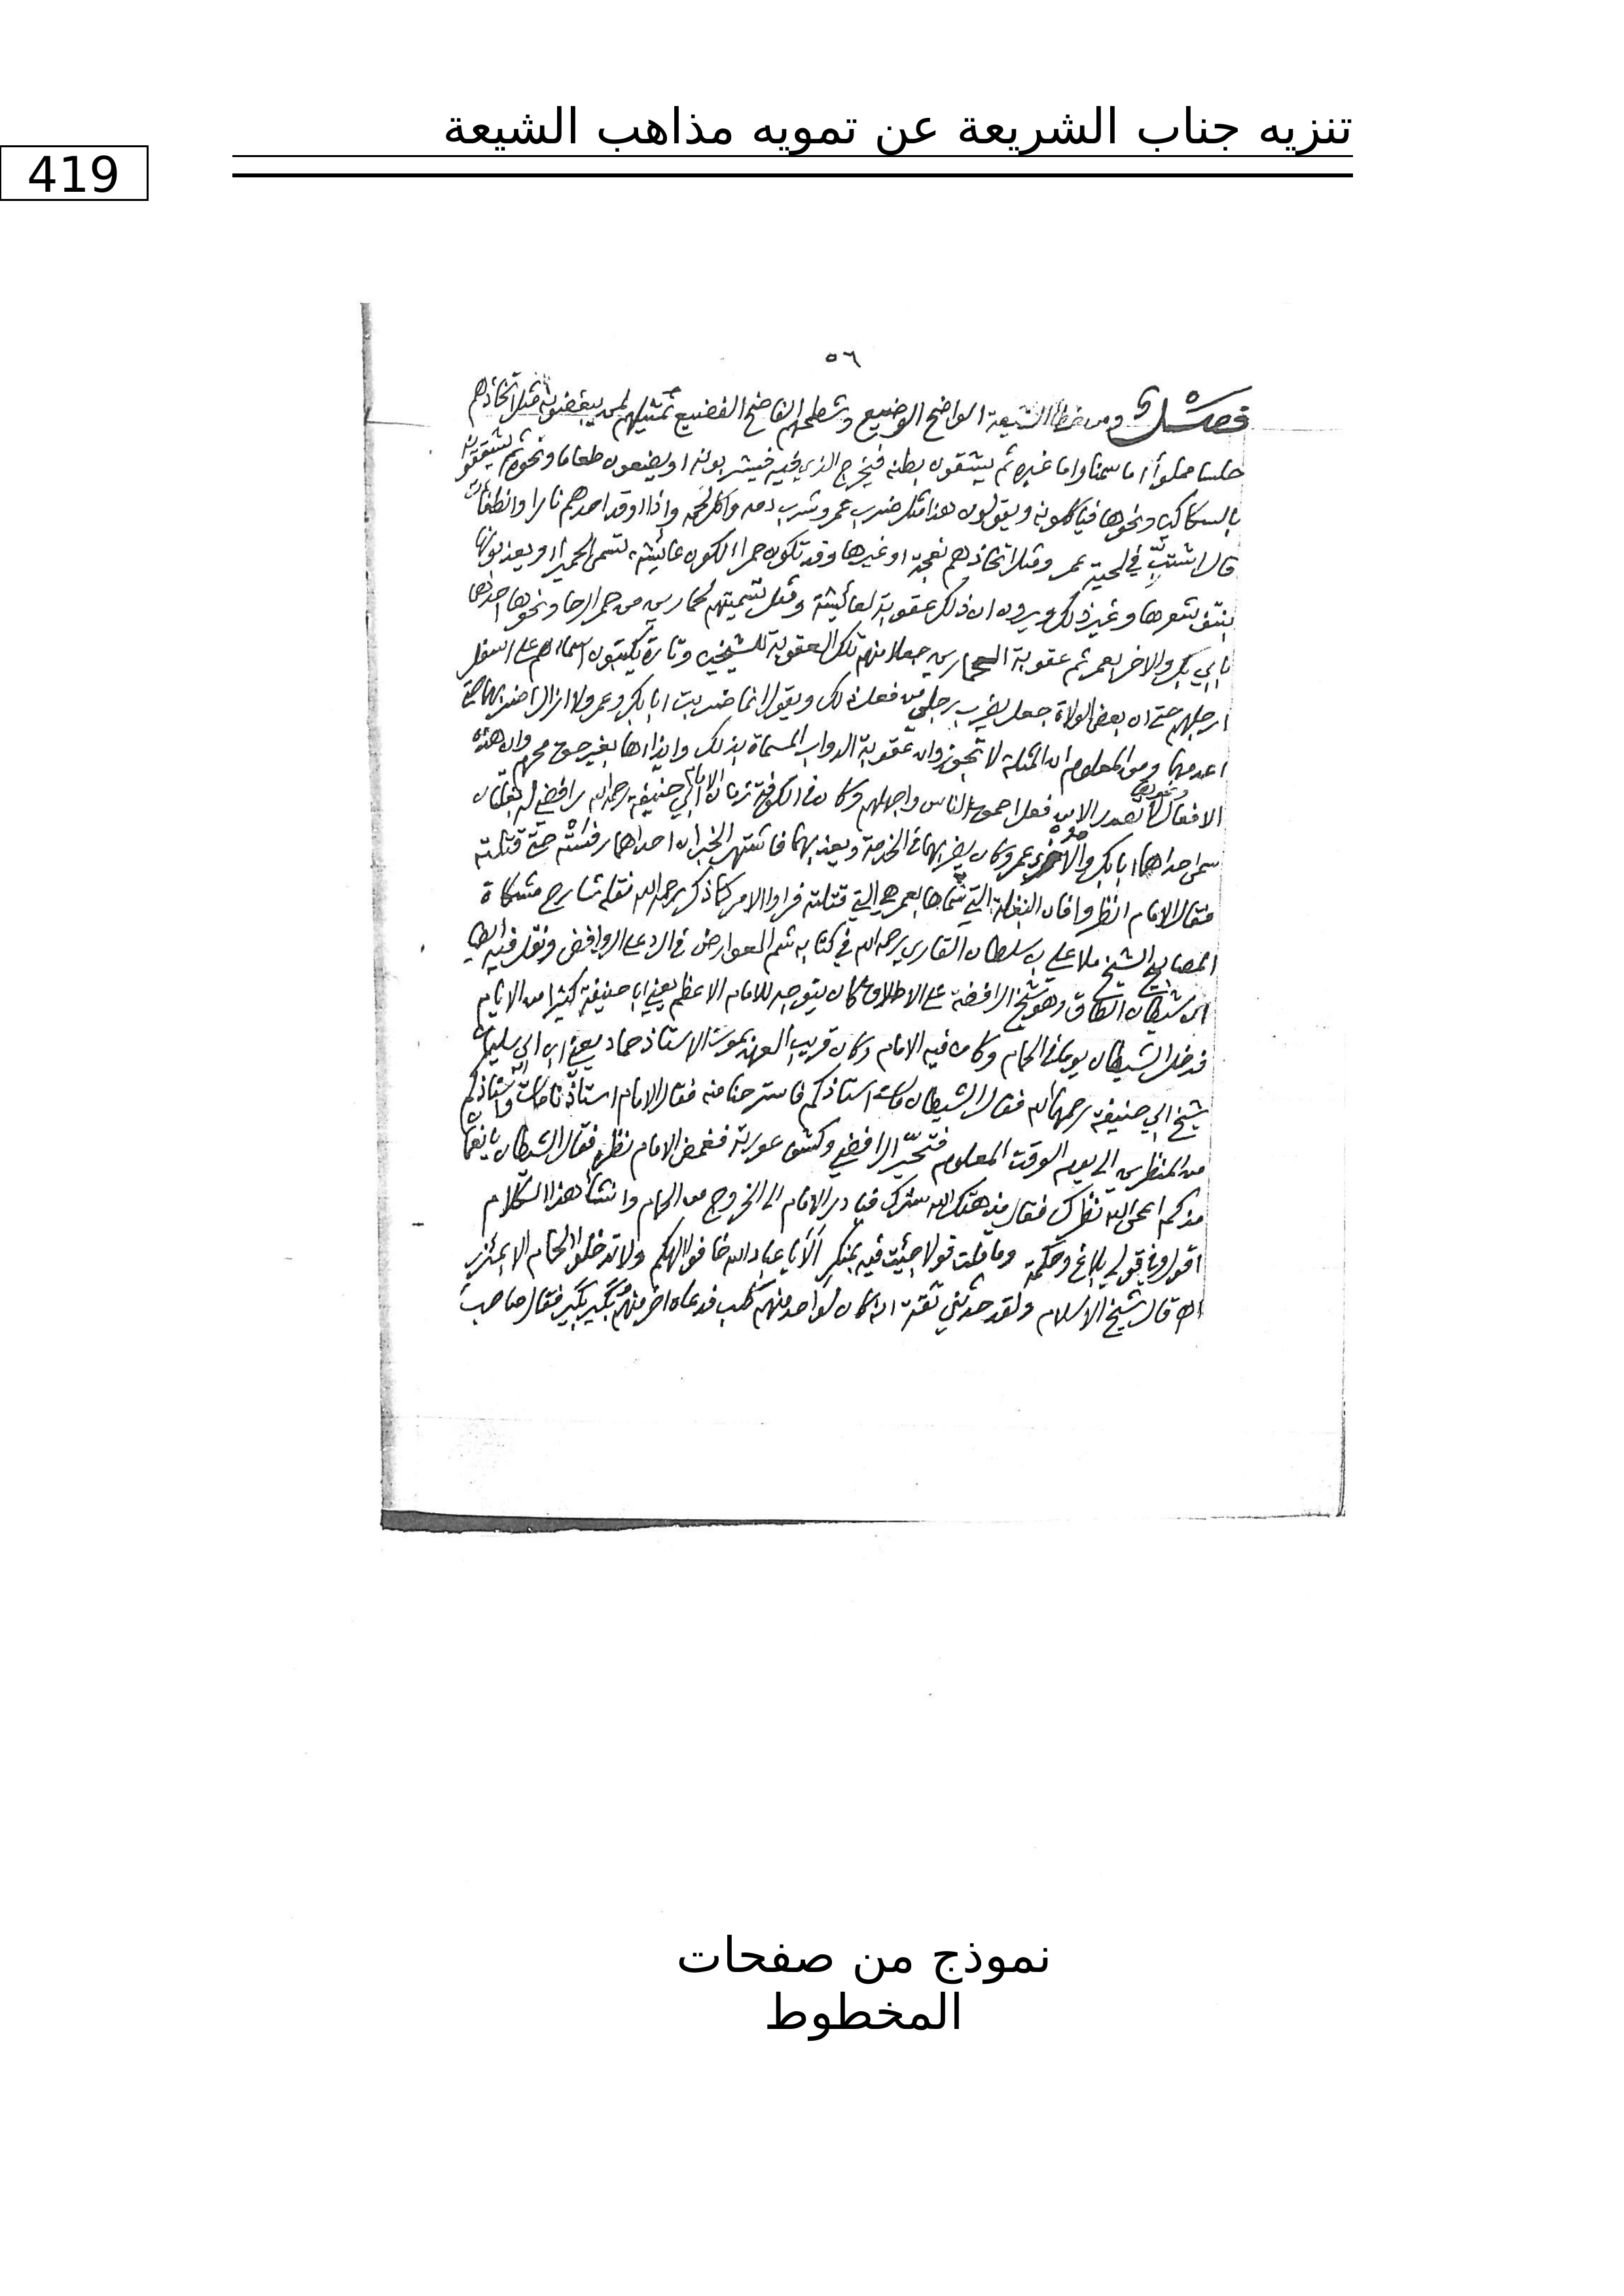 تنزيه جناب الشريعة عن تمويه مذاهب الشيعة
419
٥٦
فصل ومن خطأ الشيعة الواضح الوضيع وشطحهم الفاضح الفضيع تمثيلهم لمن يبغضونه مثل اتخاذهم
حلسا مملوأ اما سمنا واما غيره ثم يشقون بطنه فيخرج الذي فيه فيشربونه او يضعون طعاما ونحوه ثم
بالسكاكين ونحوها فياكلونه ويقولون هذا مثل ضرب عمر وشرب دمه واكل لحمه واذا اوقد احدهم نارا وانطفأت
قال اشتب في لحية عمر ومثل اتخاذهم نعجة او غيرها وقد تكون حمرا لكون عائشة تسمى الحميرا ويعذبونها
بنتف شعرها وغير ذلك ويرون ان ذلك عقوبة لعائشة ومثل تسميتهم لحمارين من حمر الرحا ونحوها احدهما
بابي بكر والاخر بعمر ثم عقوبة الحمارين جعلا منهم تلك العقوبة للشيخين وتارة يكتبون اسماءهم على اسفل
ارجلهم حتى ان بعض الولاة جعل يضرب برجلي من فعل ذلك ويقول انما ضربت ابا بكر وعمر ولا ازال اضربهما حتى
اعدمهما ومن المعلوم ان المثلة لا تجوز وان عقوبة الدواب المسماة بذلك وايذاءها بغير حق محرم وان هذه
الافعال ونحوها لا تصدر الا من فعل احمق الناس واجهلهم وكان في الكوفة زمان الامام ابي حنيفة رحمه الله رافضي له بغلتان
سمى احداهما ابا بكر والاخرى عمر وكان يضربهما في الخدمة ويعذبهما فاشتهر الخبر ان احداهما رفسته حتى قتلته
فقال الامام انظروا فان البغلة التي سماها بعمر هي التي قتلته فراوا الامر كما ذكر رحمه الله نقله شارح مشكاة
المصابيح الشيخ ملا علي بن سلطان القاري رحمه الله في كتابه شم العوارض في الرد على الروافض ونقل فيه ايضا
ان شيطان الطاق وهو شيخ الرافضة على الاطلاق كان يتوجه للامام الاعظم يعني ابا حنيفة كثيرا من الايام
فدخل الشيطان يوما في الحمام وكان فيه الامام وكان قريب العهد بموت الاستاذ حماد يعني ابن ابي سليمان
شيخ ابي حنيفة رحمهما الله فقال الشيطان مات استاذكم فاسترحنا منه فقال الامام استاذنا مات واستاذكم
من المنظرين الى يوم الوقت المعلوم فتحير الرافضي وكشف عورته فغمض الامام نظره فقال الشيطان يا نعمان
مذكم اعمى الله نظرك فقال مذ هتك الله سترك فبادر الامام الى الخروج من الحمام وانشأ هذا الكلام
اقول وفي قولي بلاغ وحكمة وما قلت قولا جئت فيه بمنكر الا يا عباد الله خافوا الهكم ولا تدخلوا الحمام الا بمئزر
اه قال شيخ الاسلام ولقد حدثني ثقة انه كان لواحد منهم كلب فدعاه اخر منهم بكير بكير فقال صاحب
نموذج من صفحات
المخطوط